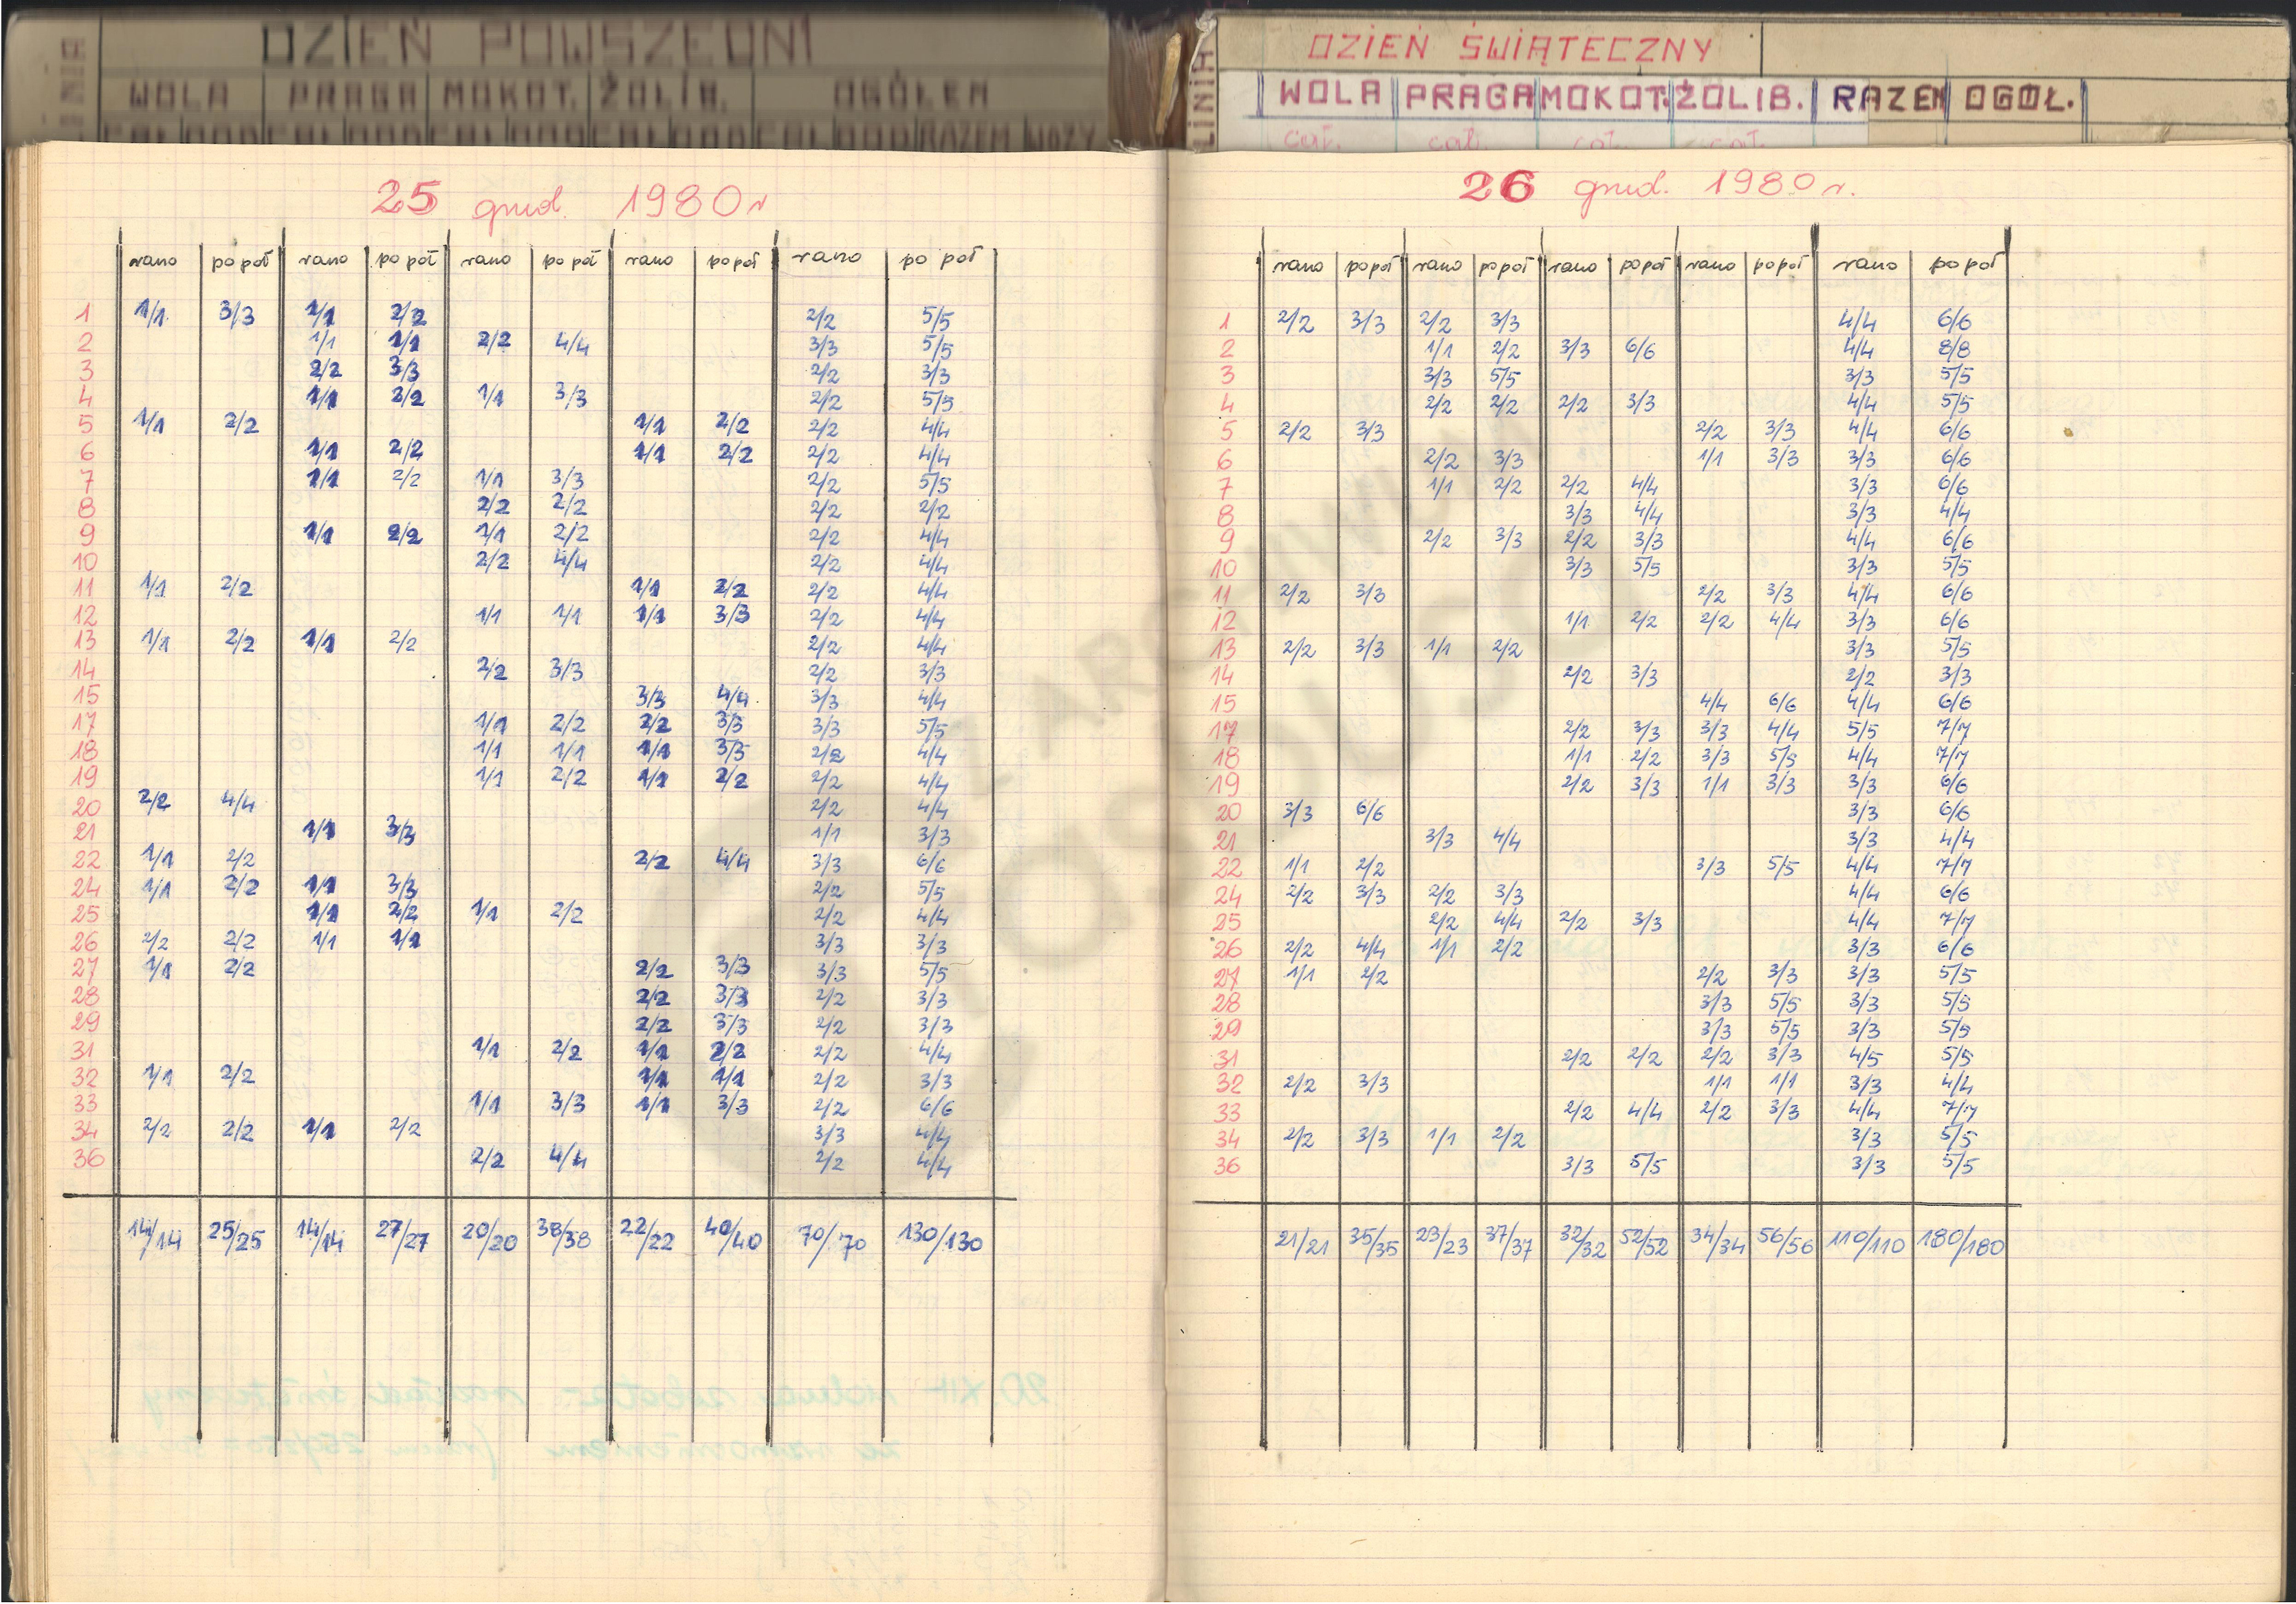 DZIEŃ POWSZEDNI
LINIA WOLA PRAGA MOKOT. ŻOLIB. OGÓŁEM
RAZEM WOZY
25 grud. 1980 r
rano po poł rano po poł rano po poł rano po poł rano po poł
1 1/1 3/3 1/1 2/2 2/2 5/5
2 1/1 1/1 2/2 4/4 3/3 5/5
3 2/2 3/3 2/2 3/3
4 1/1 2/2 1/1 3/3 2/2 5/5
5 1/1 2/2 1/1 2/2 2/2 4/4
6 1/1 2/2 1/1 2/2 2/2 4/4
7 1/1 2/2 1/1 3/3 2/2 5/5
8 2/2 2/2 2/2 2/2
9 1/1 2/2 1/1 2/2 2/2 4/4
10 2/2 4/4 2/2 4/4
11 1/1 2/2 1/1 2/2 2/2 4/4
12 1/1 1/1 1/1 3/3 2/2 4/4
13 1/1 2/2 1/1 2/2 2/2 4/4
14 2/2 3/3 2/2 3/3
15 3/3 4/4 3/3 4/4
17 1/1 2/2 2/2 3/3 3/3 5/5
18 1/1 1/1 1/1 3/3 2/2 4/4
19 1/1 2/2 1/1 2/2 2/2 4/4
20 2/2 4/4 2/2 4/4
21 1/1 3/3 1/1 3/3
22 1/1 2/2 2/2 4/4 3/3 6/6
24 1/1 2/2 1/1 3/3 2/2 5/5
25 1/1 2/2 1/1 2/2 2/2 4/4
26 2/2 2/2 1/1 1/1 3/3 3/3
27 1/1 2/2 2/2 3/3 3/3 5/5
28 2/2 3/3 2/2 3/3
29 2/2 3/3 2/2 3/3
31 1/1 2/2 1/1 2/2 2/2 4/4
32 1/1 2/2 1/1 1/1 2/2 3/3
33 1/1 3/3 1/1 3/3 2/2 6/6
34 2/2 2/2 1/1 2/2 3/3 4/4
36 2/2 4/4 2/2 4/4
14/14 25/25 14/14 27/27 20/20 38/38 22/22 40/40 70/70 130/130
DZIEŃ ŚWIĄTECZNY
LINIA WOLA PRAGA MOKOT. ŻOLIB. RAZEM OGÓŁ.
cał. cał. cał. cał.
26 grud. 1980 r.
rano po poł rano po poł rano po poł rano po poł rano po poł
1 2/2 3/3 2/2 3/3 4/4 6/6
2 1/1 2/2 3/3 6/6 4/4 8/8
3 3/3 5/5 3/3 5/5
4 2/2 2/2 2/2 3/3 4/4 5/5
5 2/2 3/3 2/2 3/3 4/4 6/6
6 2/2 3/3 1/1 3/3 3/3 6/6
7 1/1 2/2 2/2 4/4 3/3 6/6
8 3/3 4/4 3/3 4/4
9 2/2 3/3 2/2 3/3 4/4 6/6
10 3/3 5/5 3/3 5/5
11 2/2 3/3 2/2 3/3 4/4 6/6
12 1/1 2/2 2/2 4/4 3/3 6/6
13 2/2 3/3 1/1 2/2 3/3 5/5
14 2/2 3/3 2/2 3/3
15 4/4 6/6 4/4 6/6
17 2/2 3/3 3/3 4/4 5/5 7/7
18 1/1 2/2 3/3 5/5 4/4 7/7
19 2/2 3/3 1/1 3/3 3/3 6/6
20 3/3 6/6 3/3 6/6
21 3/3 4/4 3/3 4/4
22 1/1 2/2 3/3 5/5 4/4 7/7
24 2/2 3/3 2/2 3/3 4/4 6/6
25 2/2 4/4 2/2 3/3 4/4 7/7
26 2/2 4/4 1/1 2/2 3/3 6/6
27 1/1 2/2 2/2 3/3 3/3 5/5
28 3/3 5/5 3/3 5/5
29 3/3 5/5 3/3 5/5
31 2/2 2/2 2/2 3/3 4/5 5/5
32 2/2 3/3 1/1 1/1 3/3 4/4
33 2/2 4/4 2/2 3/3 4/4 7/7
34 2/2 3/3 1/1 2/2 3/3 5/5
36 3/3 5/5 3/3 5/5
21/21 35/35 23/23 37/37 32/32 52/52 34/34 56/56 110/110 180/180